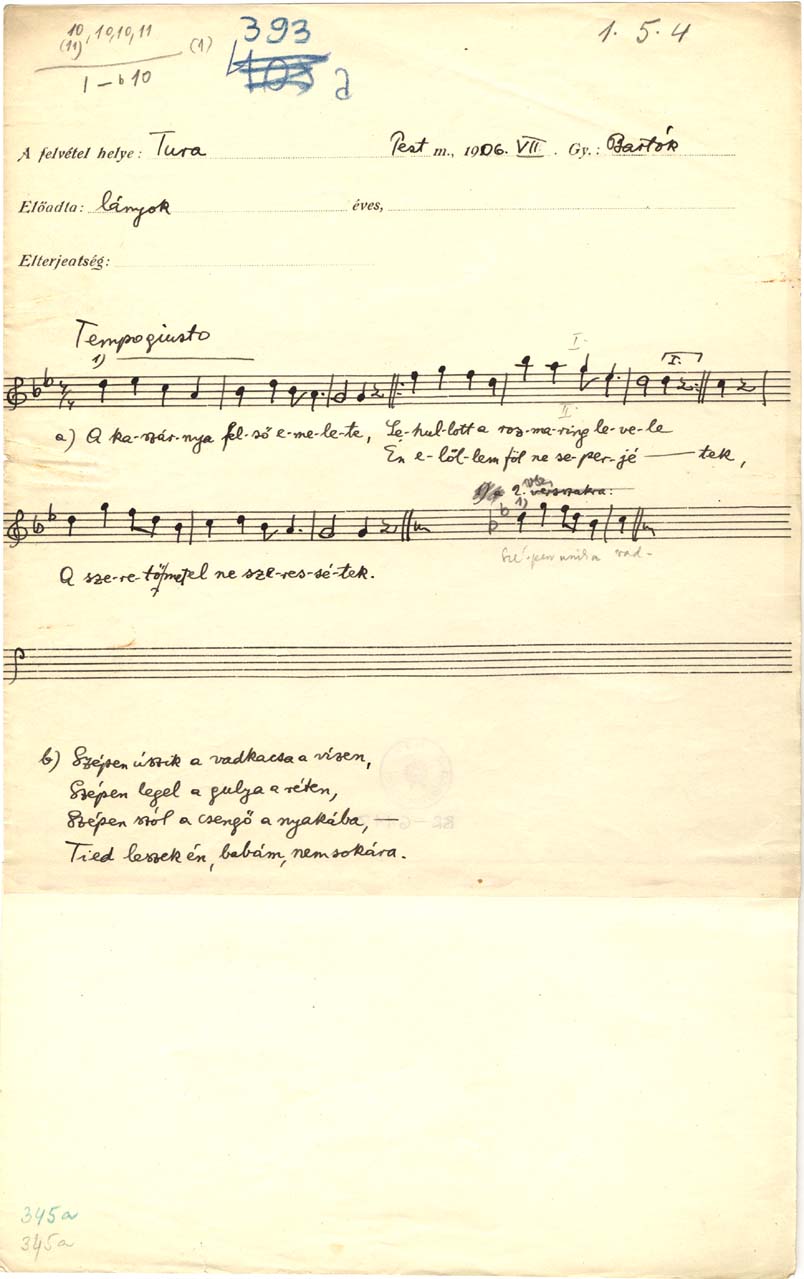 10, 10, 10, 11
(11)
(1)
1 – b10
393
103 a
1. 5. 4
A felvétel helye: Tura Pest m., 1906. VII. Gy.: Bartók
Előadta: lányok éves,
Elterjedtség:
Tempo giusto
1)
I.
I.
II.
a) A ka-szár-nya fel-ső e-me-le-te, Le-hul-lott a roz-ma-ring le-ve-le
Én e-lől-lem föl ne se-per-jé — tek,
2. versszakra:
1)
A sze-re-tőmet el ne sze-res-sé-tek.
Szé-pen úszik a vad-
b) Szépen úszik a vadkacsa a vízen,
Szépen legel a gulya a réten,
Szépen szól a csengő a nyakába, —
Tied leszek én, babám, nemsokára.
345a
345a